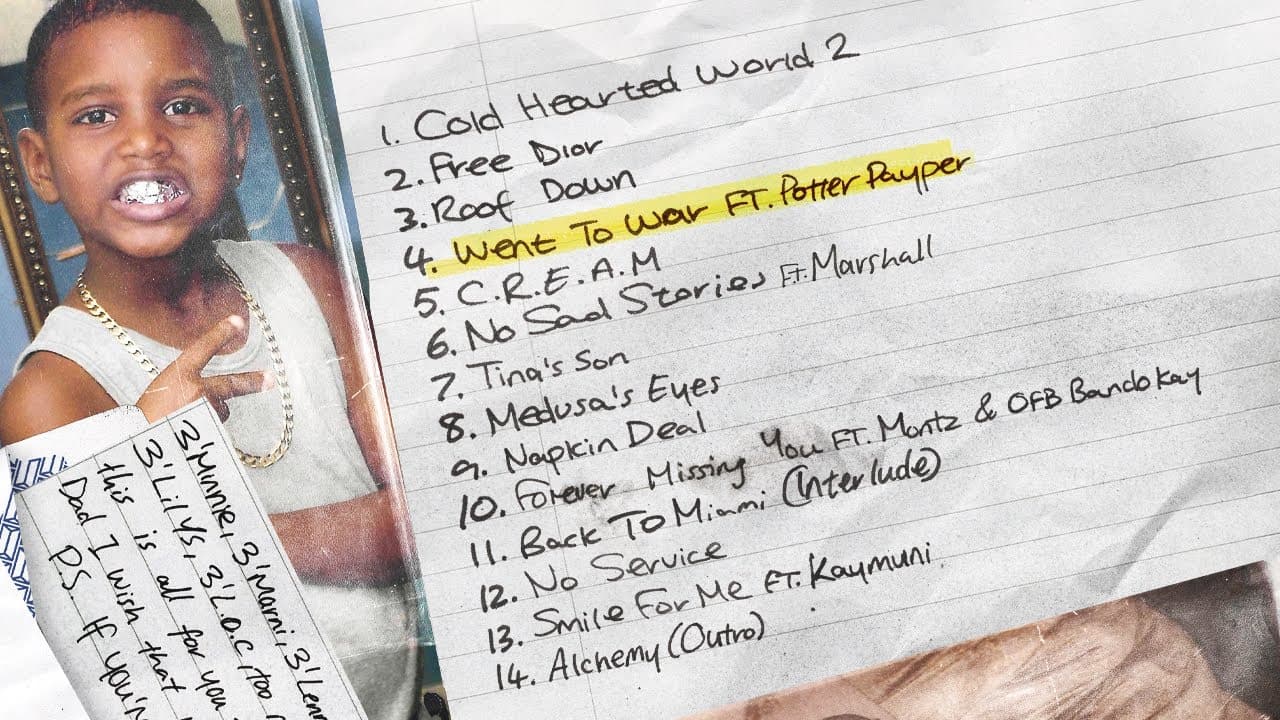 1. Cold Hearted World 2
2. Free Dior
3. Roof Down
4. Went To War FT. Potter Payper
5. C.R.E.A.M
6. No Sad Stories Ft. Marshall
7. Tina's Son
8. Medusa's Eyes
9. Napkin Deal
10. Forever Missing You FT. Mortz & OFB Bandokay
11. Back To Miami (Interlude)
12. No Service
13. Smile For Me FT. Kaymuni.
14. Alchemy (Outro)
3'Minnie, 3'Marni, 3'Lenn
3'Lilys, 3'L.O.C, too
this is all for you
Dad I wish that
P.S. If you'r